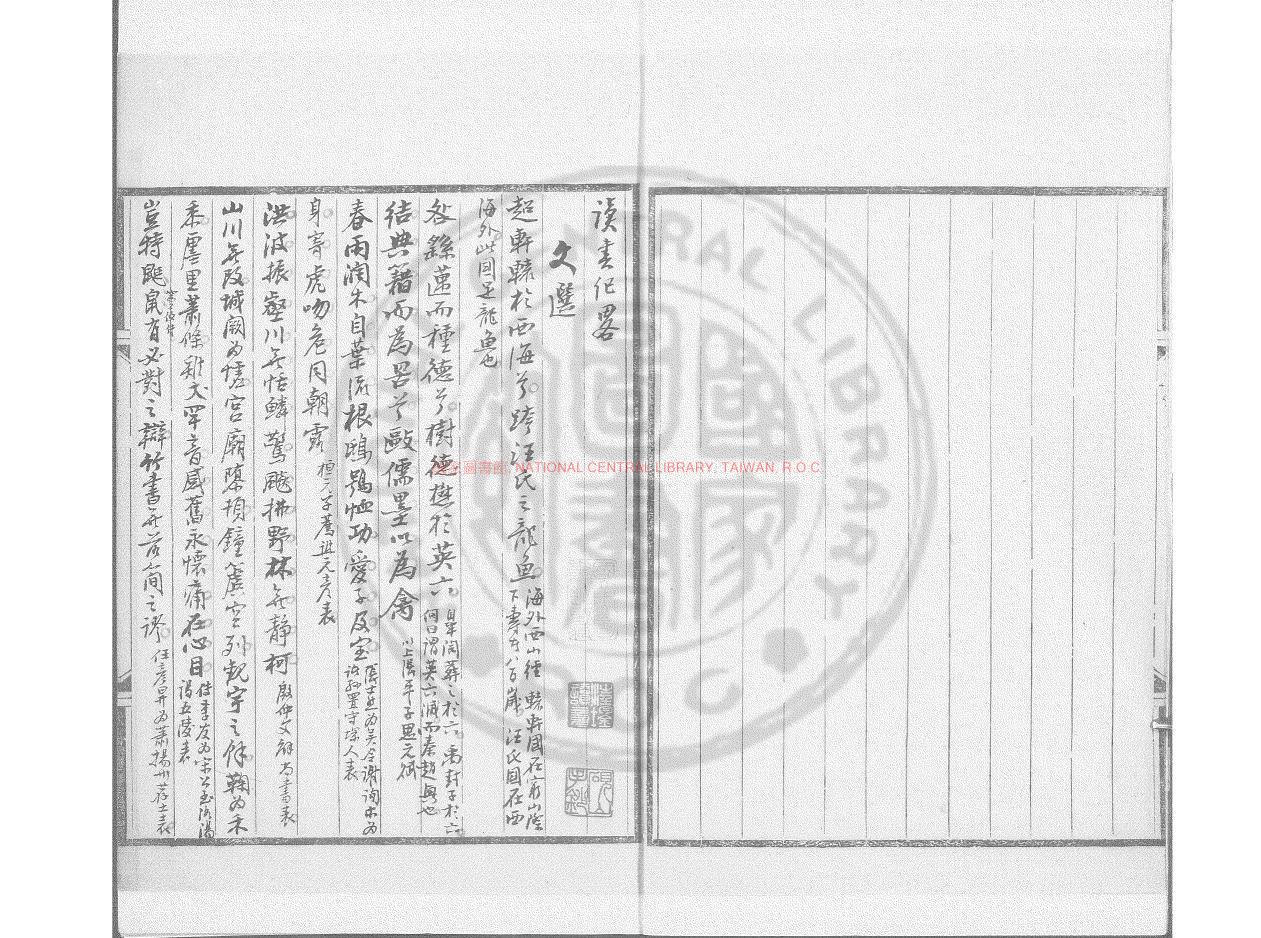 讀書記畧
文選
超軒轅於西海兮跨汪氏之龍魚海外西山經軒轅國在窮山際下壽者八百歲汪氏國在西
海外此國足龍魚也
咎繇邁而種德兮樹德懋於英六皋陶葬之於六禹封子於六何曰謂英六滅而秦趙興也
結典籍而為罟兮敺儒墨以為禽以上張平子思元賦
春雨潤木自葉流根鴟鴞恤功愛子及室張士然為吳令謝詢求為諸孫置守塚人表
身寄虎吻危同朝露桓元子薦譙元彥表
洪波振壑川無恬鱗驚飈拂野林無靜柯殷仲文解尚書表
山川無改城闕為墟宮廟隳頓鐘簴空列觀宇之餘鞠為禾
黍廛里蕭條雞犬罕音感舊永懷痛在心目傅季友為宋公至洛陽謁五陵表
豈特鼮鼠有必對之辯竹書無落簡之謬任彥昇為蕭揚州荐士表
國家圖書館, NATIONAL CENTRAL LIBRARY, TAIWAN, R.O.C
CENTRAL LIBRARY
R O C
國家圖書館